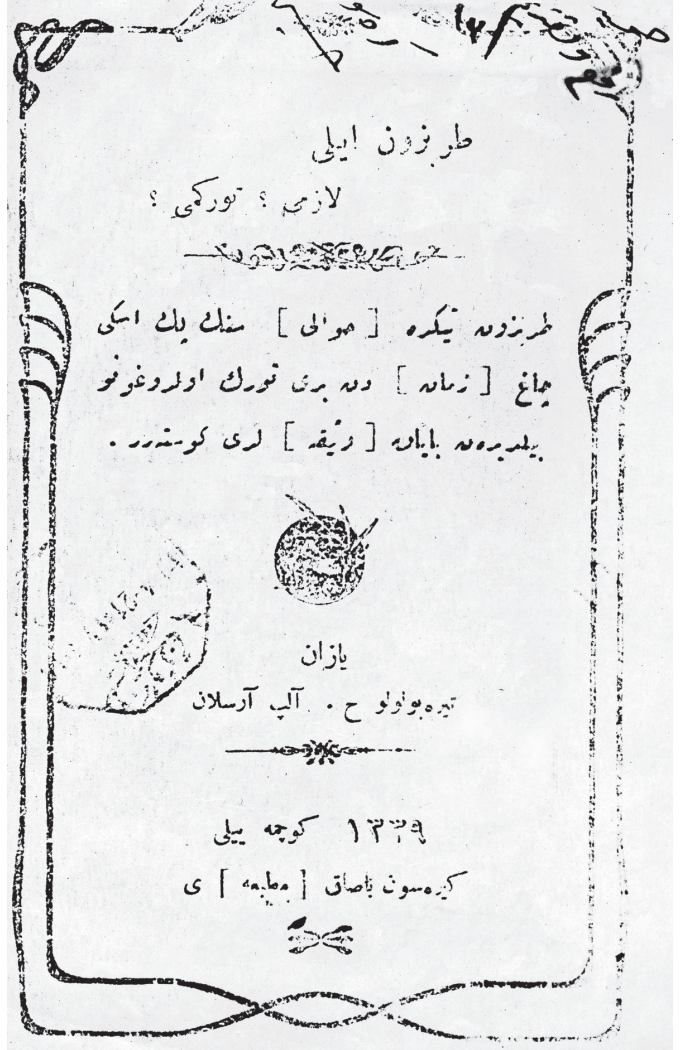 طربزون ایلی
لازمی ؟ تورکمی ؟
طربزون تیكره [ حوالی ] سنك پك اسكی
چاغ [ زمان ] دن بری تورك اولدوغونو
بیلدیرەن بایان [ وثیقه ] لری كوستەرر .
یازان
تیرەبولولو ح . آلپ آرسلان
١٣٣٩ كوچمه ییلی
كیرەسون باصاق [ مطبعه ] ی